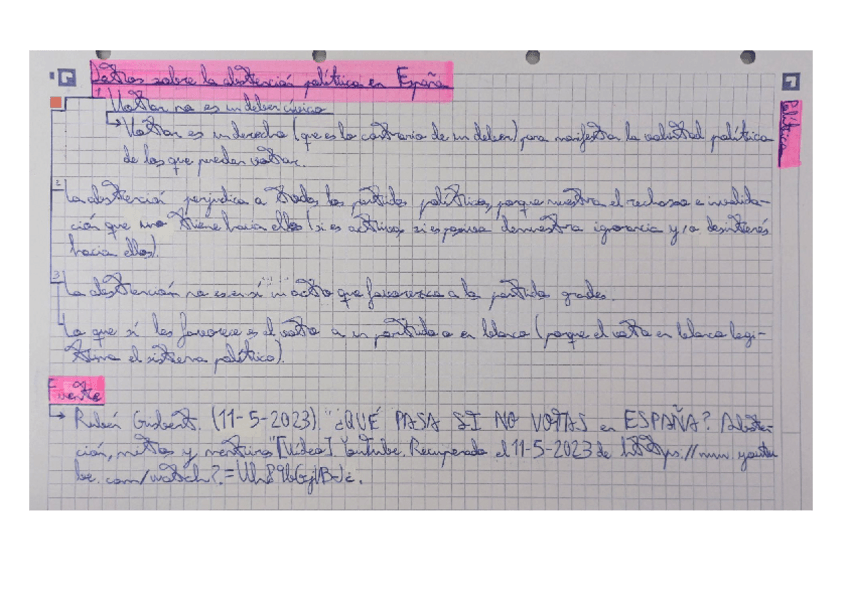 Datos sobre la abstención política en España
1 Votar no es un deber cívico
Votar es un derecho (que es lo contrario de un deber) para manifestar la voluntad política
de los que pueden votar.
Política
2 La abstención perjudica a todos los partidos políticos, porque muestra el rechazo e invalida-
ción que uno tiene hacia ellos (si es activa, si es pasiva demuestra ignorancia y/o desinterés
hacia ellos).
3 La abstención no es en sí un acto que favorezca a los partidos grandes.
Lo que sí les favorece es el voto a un partido o en blanco (porque el voto en blanco legi-
tima el sistema político).
Fuente
Rubén Gisbert. (11-5-2023). "¿QUÉ PASA SI NO VOTAS en ESPAÑA? Absten-
ción, mitos y mentiras" [Vídeo]. Youtube. Recuperado el 11-5-2023 de https://www.youtu
be.com/watch?.=